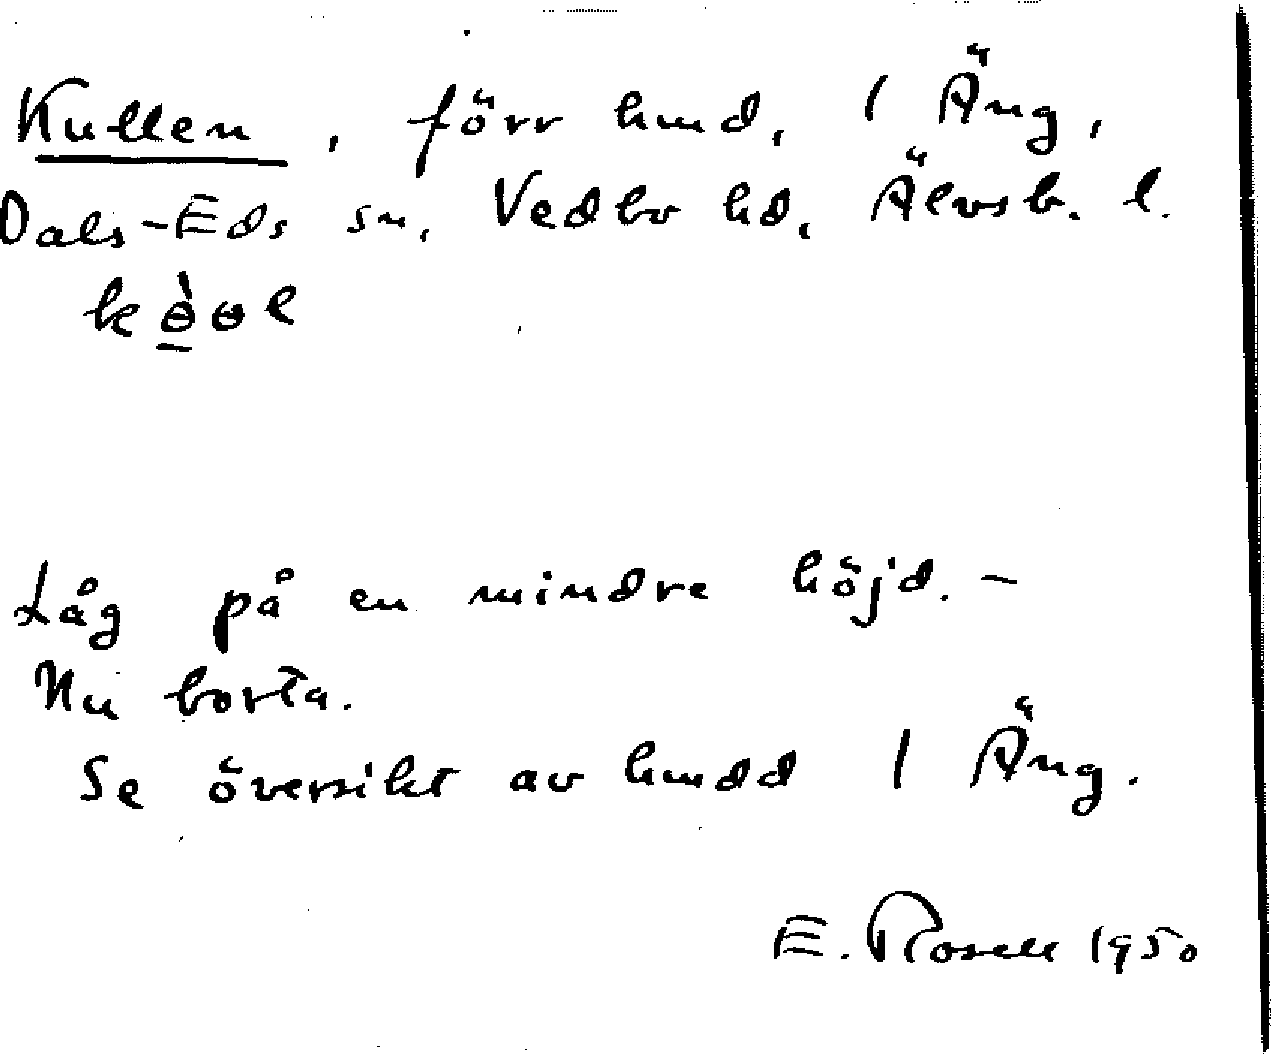 Kullen, förr hmd, 1 Äng,
Dals-Eds sn, Vedbo hd, Älvsb. l.
Låg på en mindre höjd. —
Nu borta.
Se översikt av hmdd 1 Äng.
E. Rosell 1950